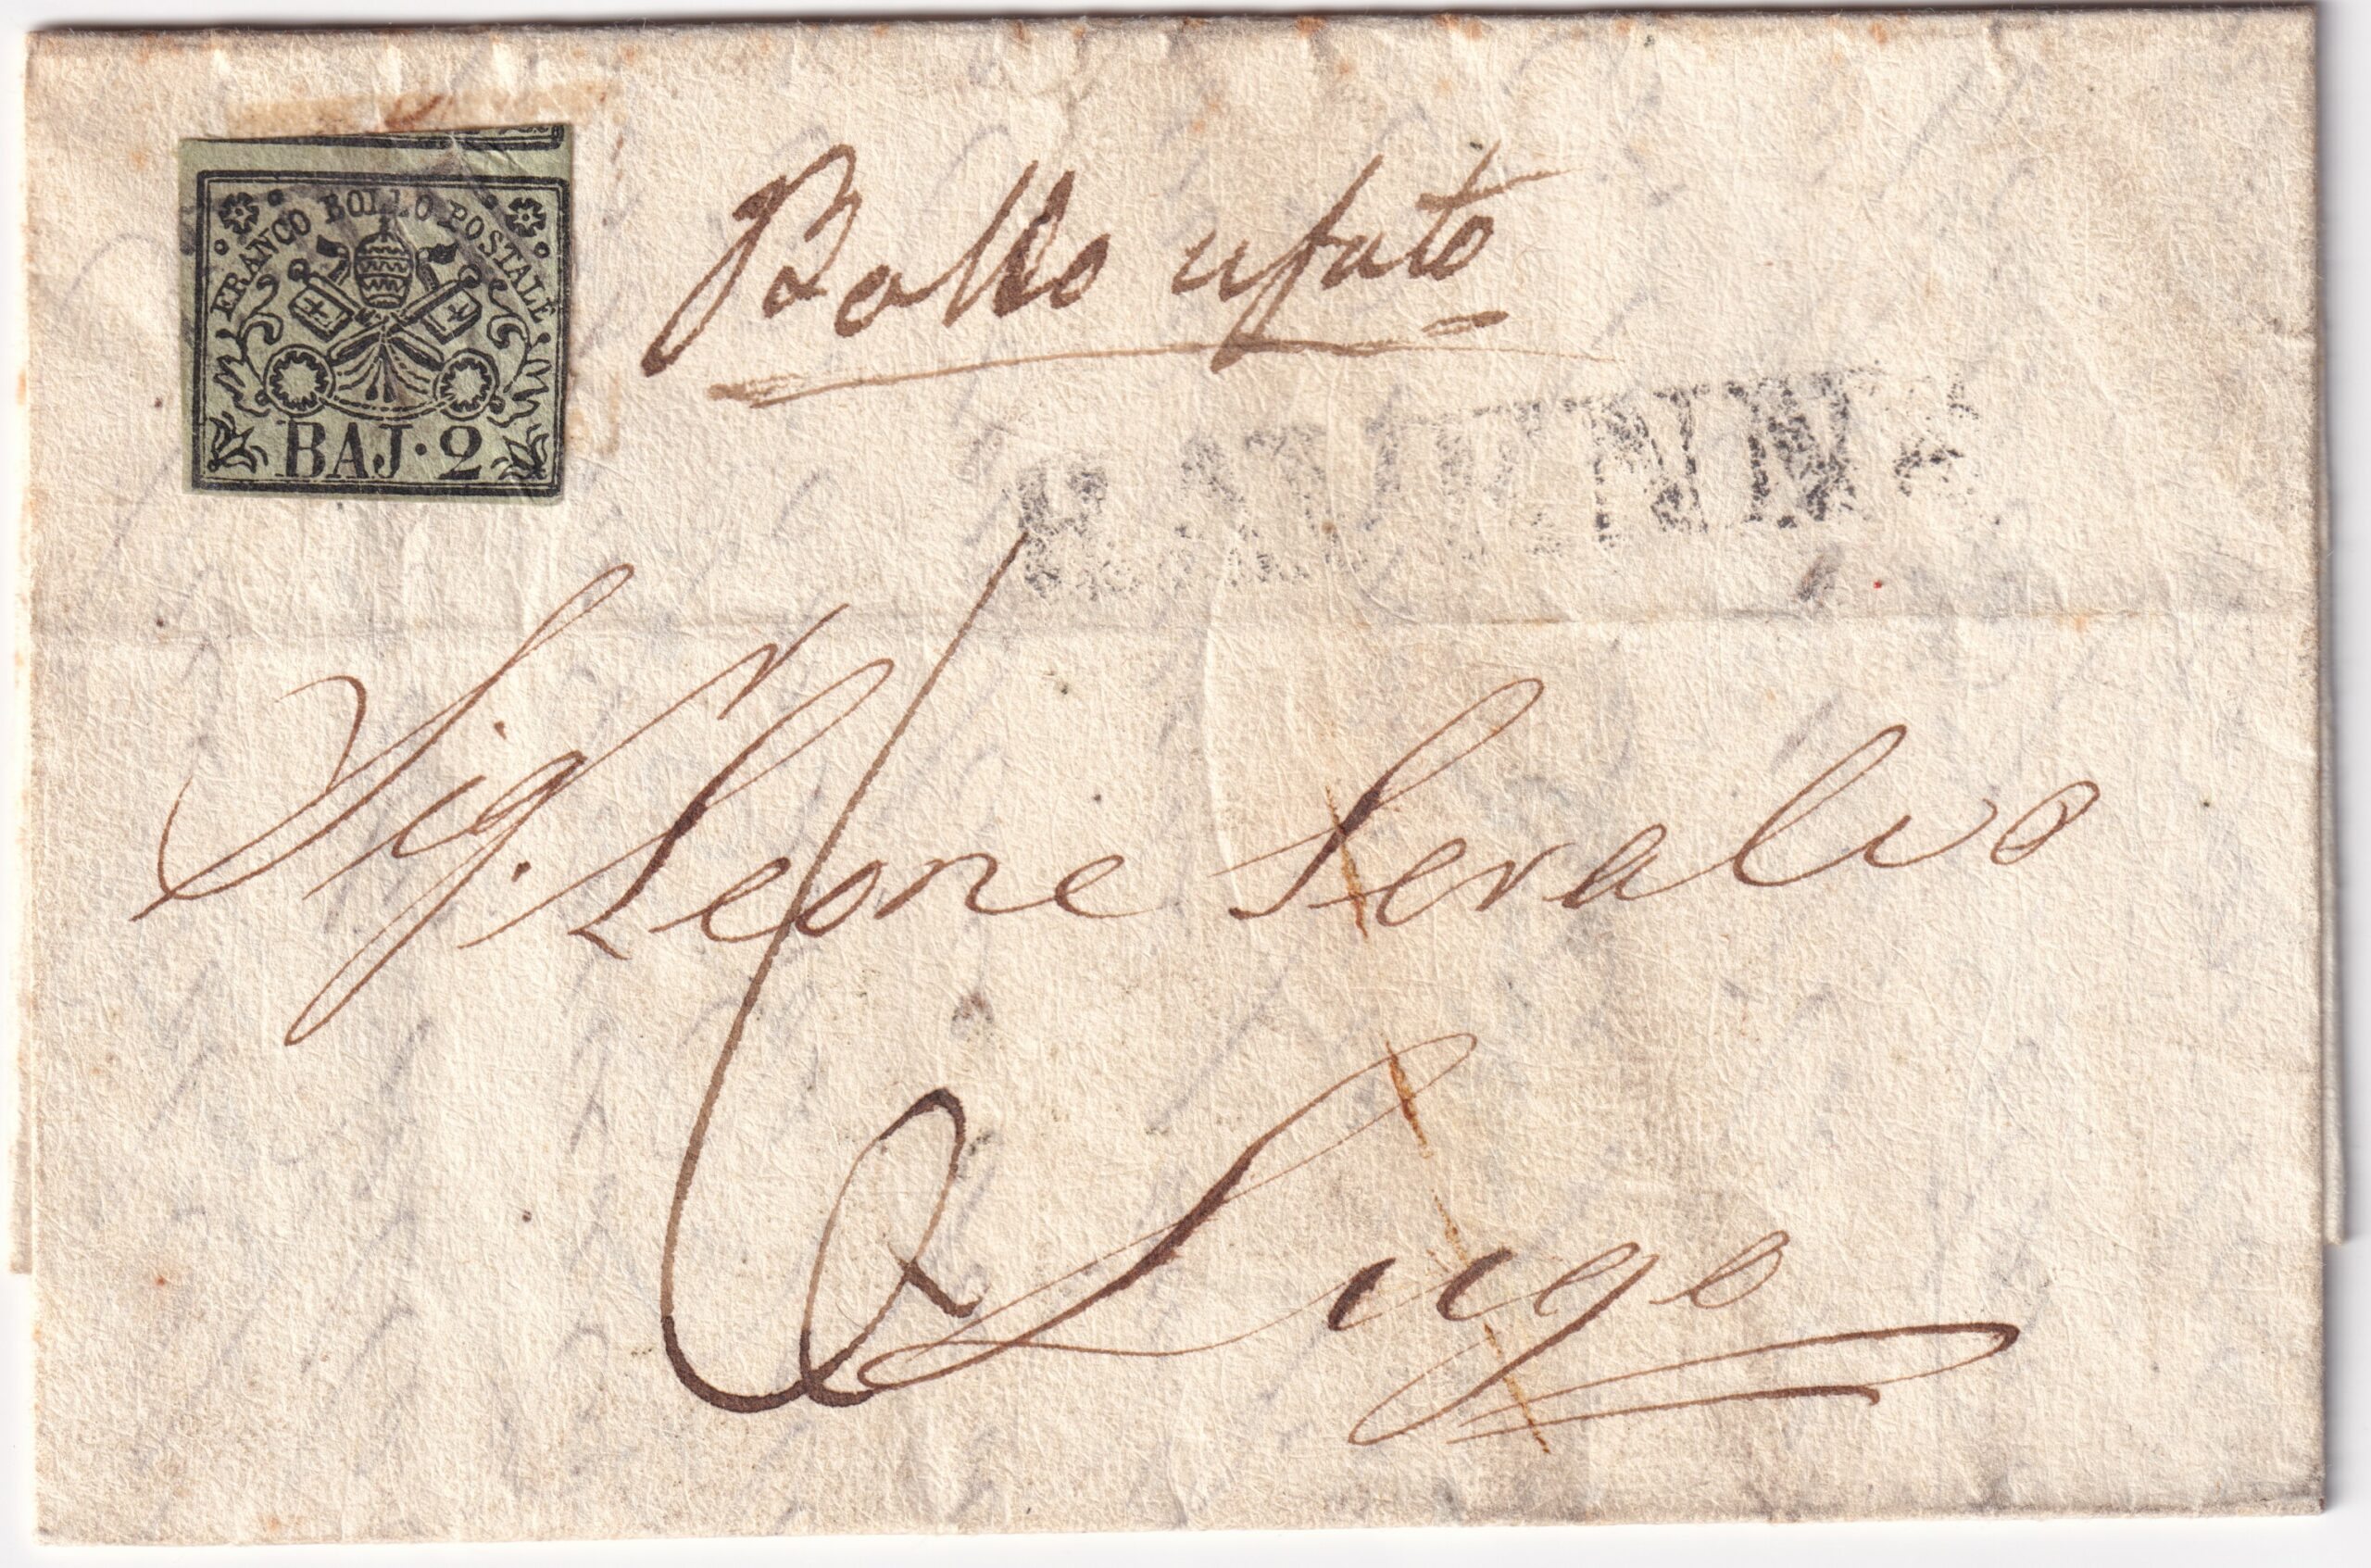 FRANCO BOLLO POSTALE
BAJ·2
Bollo usato
RAVENNA
Sigr. Leone
Lugo